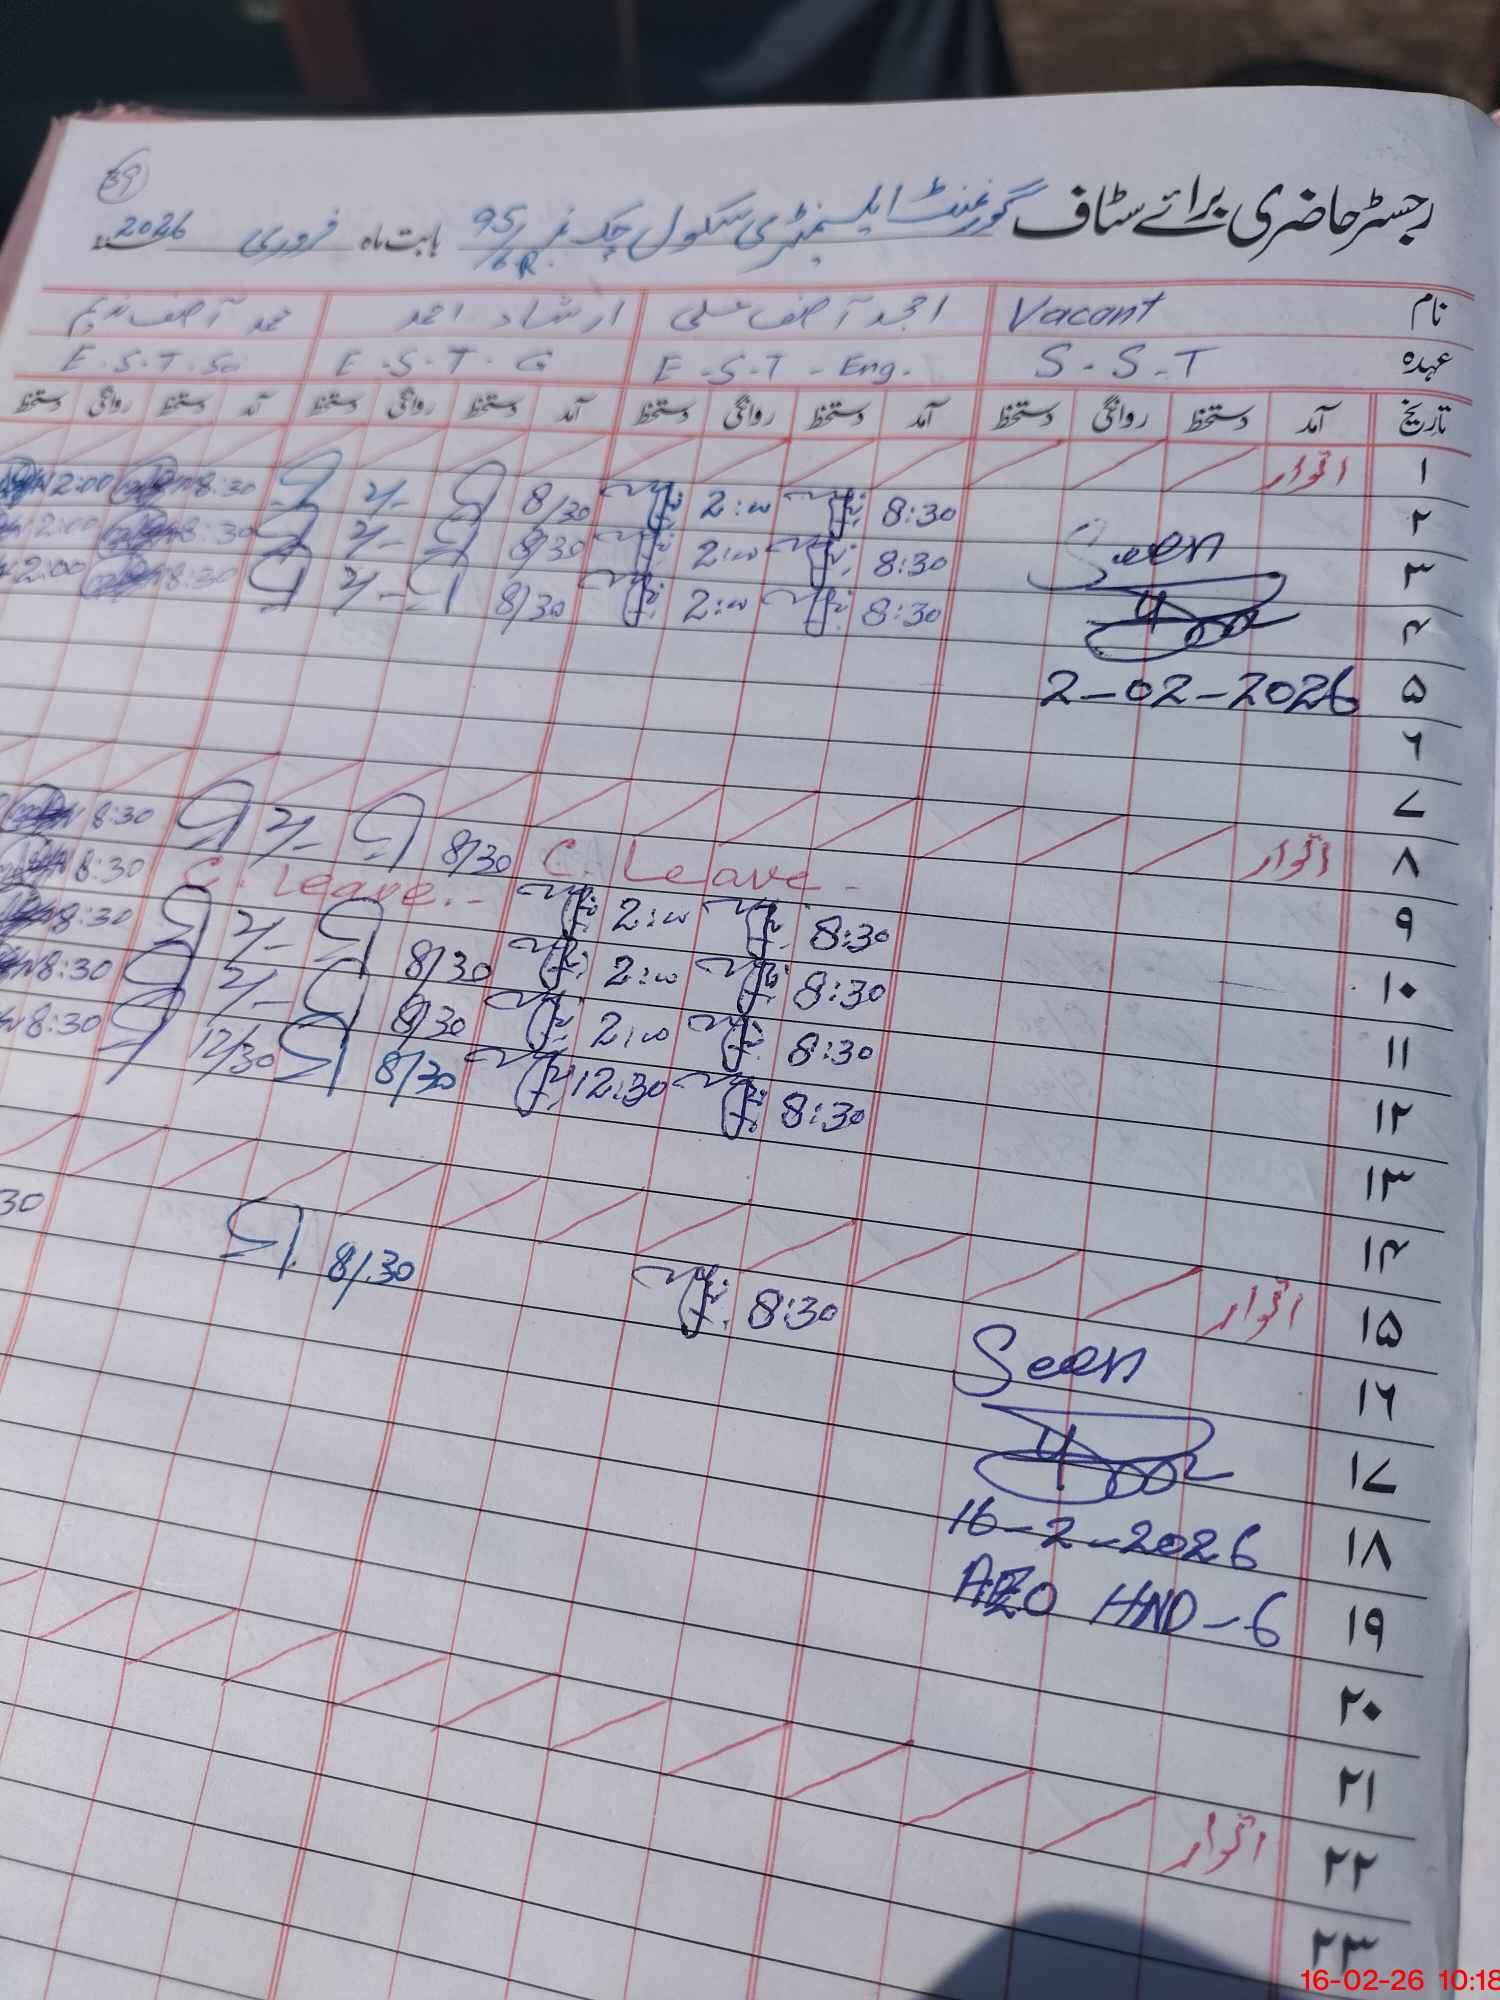 39
رجسٹر حاضری برائے سٹاف گورنمنٹ ایلیمنٹری سکول چک نمبر 95/6R بابت ماہ فروری 2026ء
نام Vacant امجد آصف علی ارشاد احمد محمد آصف ندیم
عہدہ S-S-T E-S-T-Eng. E-S-T-G E-S-T-Sci
تاریخ آمد دستخط روانگی دستخط آمد دستخط روانگی دستخط آمد دستخط روانگی دستخط آمد دستخط روانگی دستخط
۱ اتوار
۲ 8:30 2:00 8/30 2/- 8:30 2:00
۳ Seen 8:30 2:00 8/30 2/- 8:30 2:00
۴ 8:30 2:00 8/30 2/- 8:30 2:00
۵ 2-02-2026
۶
۷
۸ اتوار
۹ C. Leave - 8/30 2/- 8:30
۱۰ 8:30 2:00 C. Leave.- 8:30
۱۱ 8:30 2:00 8/30 2/- 8:30
۱۲ 8:30 2:00 8/30 2/- 8:30
۱۳ 8:30 12:30 8/30 12/30 8:30
۱۴
۱۵ اتوار
۱۶ 8:30 8/30 30
Seen
۱۷
۱۸ 16-2-2026
۱۹ AEO HND-6
۲۰
۲۱
۲۲ اتوار
۲۳
16-02-26 10:18